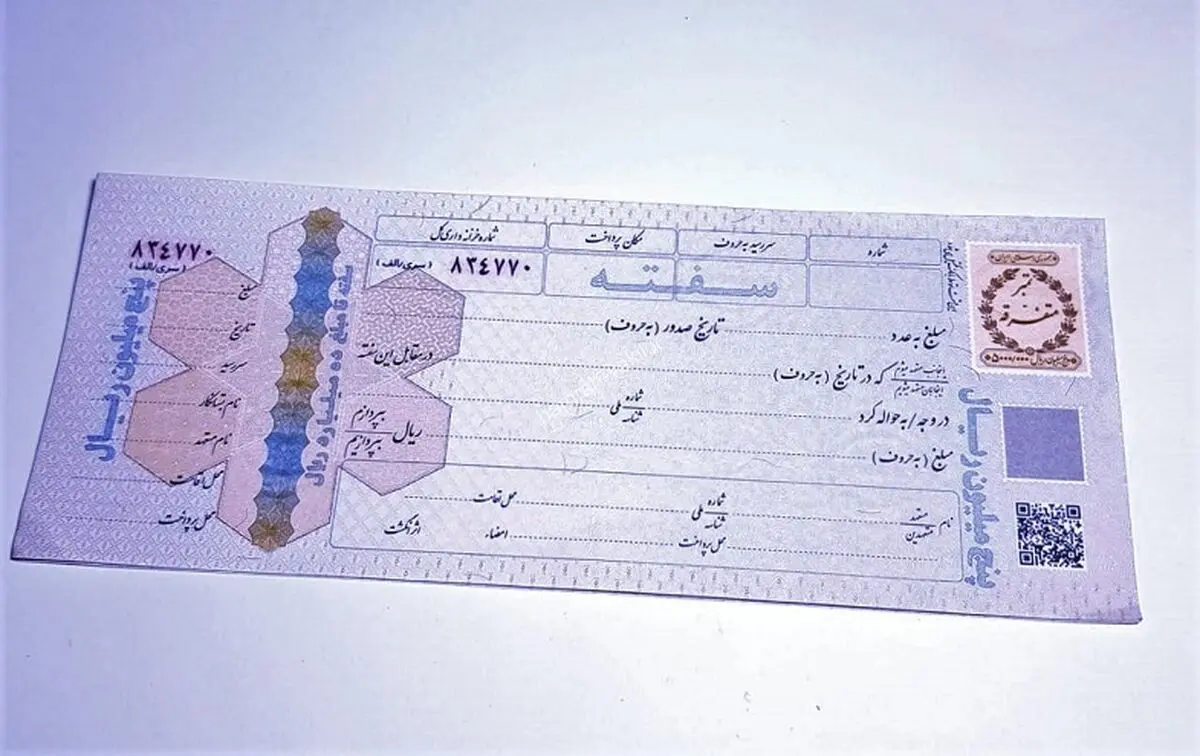 شماره
سررسید به حروف
مکان پرداخت
شماره خزانه داری کل
سفته
۸۳۴۷۷۰
(سری/الف)
جمهوری اسلامی ایران
تمبر
متفرقه
۵۰۰۰/۰۰۰
پنج میلیون ریال
مبلغ به عدد
تاریخ صدور (به حروف)
که در تاریخ (به حروف)
در مقابل این سفته
در وجه / به حواله کرد
شماره
شناسه
ملی
مبلغ (به حروف)
ریال
بپردازم
بپردازیم
نام
متعهد
متعهدین
شماره
شناسه
ملی
محل اقامت
محل پرداخت
امضاء
اثر انگشت
پنج میلیون ریال
سفته تا مبلغ ده میلیارد ریال
۸۳۴۷۷۰
(سری/الف)
مبلغ
تاریخ
سررسید
نام بستانکار
نام متعهد
محل اقامت
محل پرداخت
پنج میلیون ریال